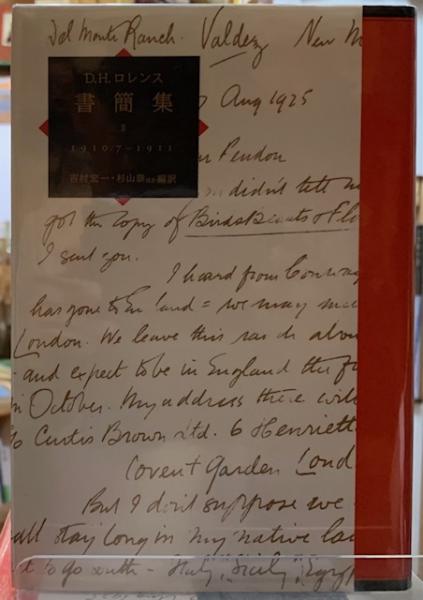 Del Monte Ranch. Valdez New M
D.H.ロレンス
書簡集
II
1910.7–1911
吉村宏一・杉山泰ほか編訳
Aug 1925
Pendon
didn't tell m
got the copy of Birds Beasts & Flo
I sent you.
I heard from Conway
has gone to England = we may
London. We leave this ranch abou
and expect to be in England the fi
in October. My address there will
Curtis Brown Ltd. 6 Henriett
Covent Garden Lond
But I don't suppose we
all stay long in my native la
to go south – Italy, Sicily, Egyp